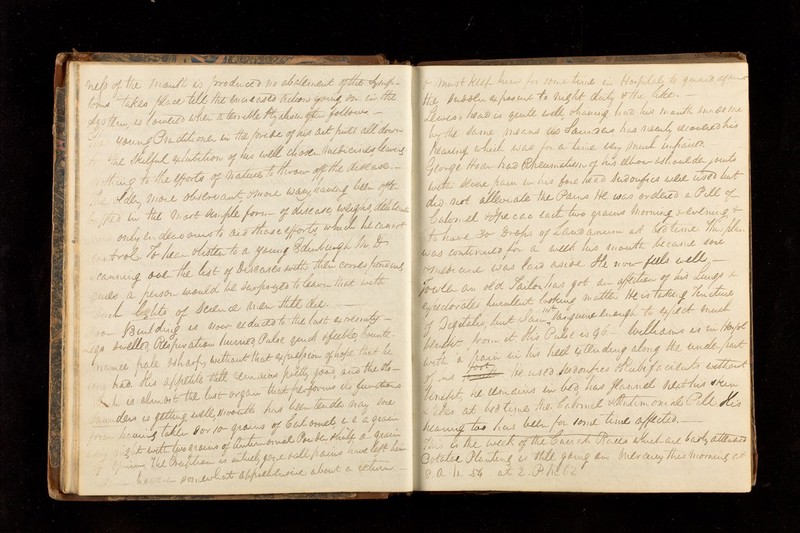 ness of the mouth is produced no abatement of the Symp-
toms takes place till the increased Action going on in the
System, is lowered when a terrible Ptyalism often follows —
The young Practitioner in the pride of his art puts all down
to the skilful exhibition of his well chosen Medicines leaving
nothing to the efforts of Nature to throw off the disease. —
The Older, more observant & more wary having been often
in the most simple form of disease, weighs, deliberates
only endeavours to aid those efforts which he cannot
control. To hear a young Edinburgh M.D
scanning over the list of Diseases with their corresponding
cures a person would be surprised to learn that with
such lights of Science men still die. —
Poor Building is now reduced to the last extremity —
Legs swollen, Respiration hurried, Pulse quick & feeble, Counte-
nance pale & sharp, without that expression of hope that he
long had. His appetite still remains pretty good, and the Sto-
mach is almost the last organ that performs its functions
Saunders is getting well, mouth has been tender may
from having taken 8 or 10 grains of Calomel
with two grains of Antimonial Powder & half a grain
of Opium. The Eruption is entirely gone & all pains have left him
somewhat apprehensive about a return —
& must keep him for some time in Hospital to guard against
the sudden exposure to night duty & the like. —
Lewis's head is quite well & having had his mouth made sore
by the same means as Saunders has nearly recovered his
hearing which was for a time very much impaired.
George Hoar had Rheumatism of his elbow & shoulder joints
with severe pain in his fore head Sudorifics were used but
did not alleviate the Pains He was ordered a Pill of
Calomel & Ipecac each two grains Morning & evening &
to have 30 Drops of Laudanum at bedtime This plan
was continued for a week his mouth became sore
& Medicine was laid aside He now feels well, —
an old Sailor has got an affection of his Lungs &
expectorates purulent looking matter He is taking Tincture
of Digitalis, but I am not sanguine enough to expect much
benefit from it His Pulse is 96 — Williams is in Hospl
with a pain in his heel extending along the under part
of his foot. He used Sudorifics & Rubifacients without
benefit, he remains in bed, has flannel next his skin
& takes at bed time the Calomel & Antimonial Pill His
hearing too has been for some time affected. —
This is the week of the Races which are badly attended
Potatoe Planting is still going on Mercury this morning at
8 A.M. 54 at 2. P.M. 62